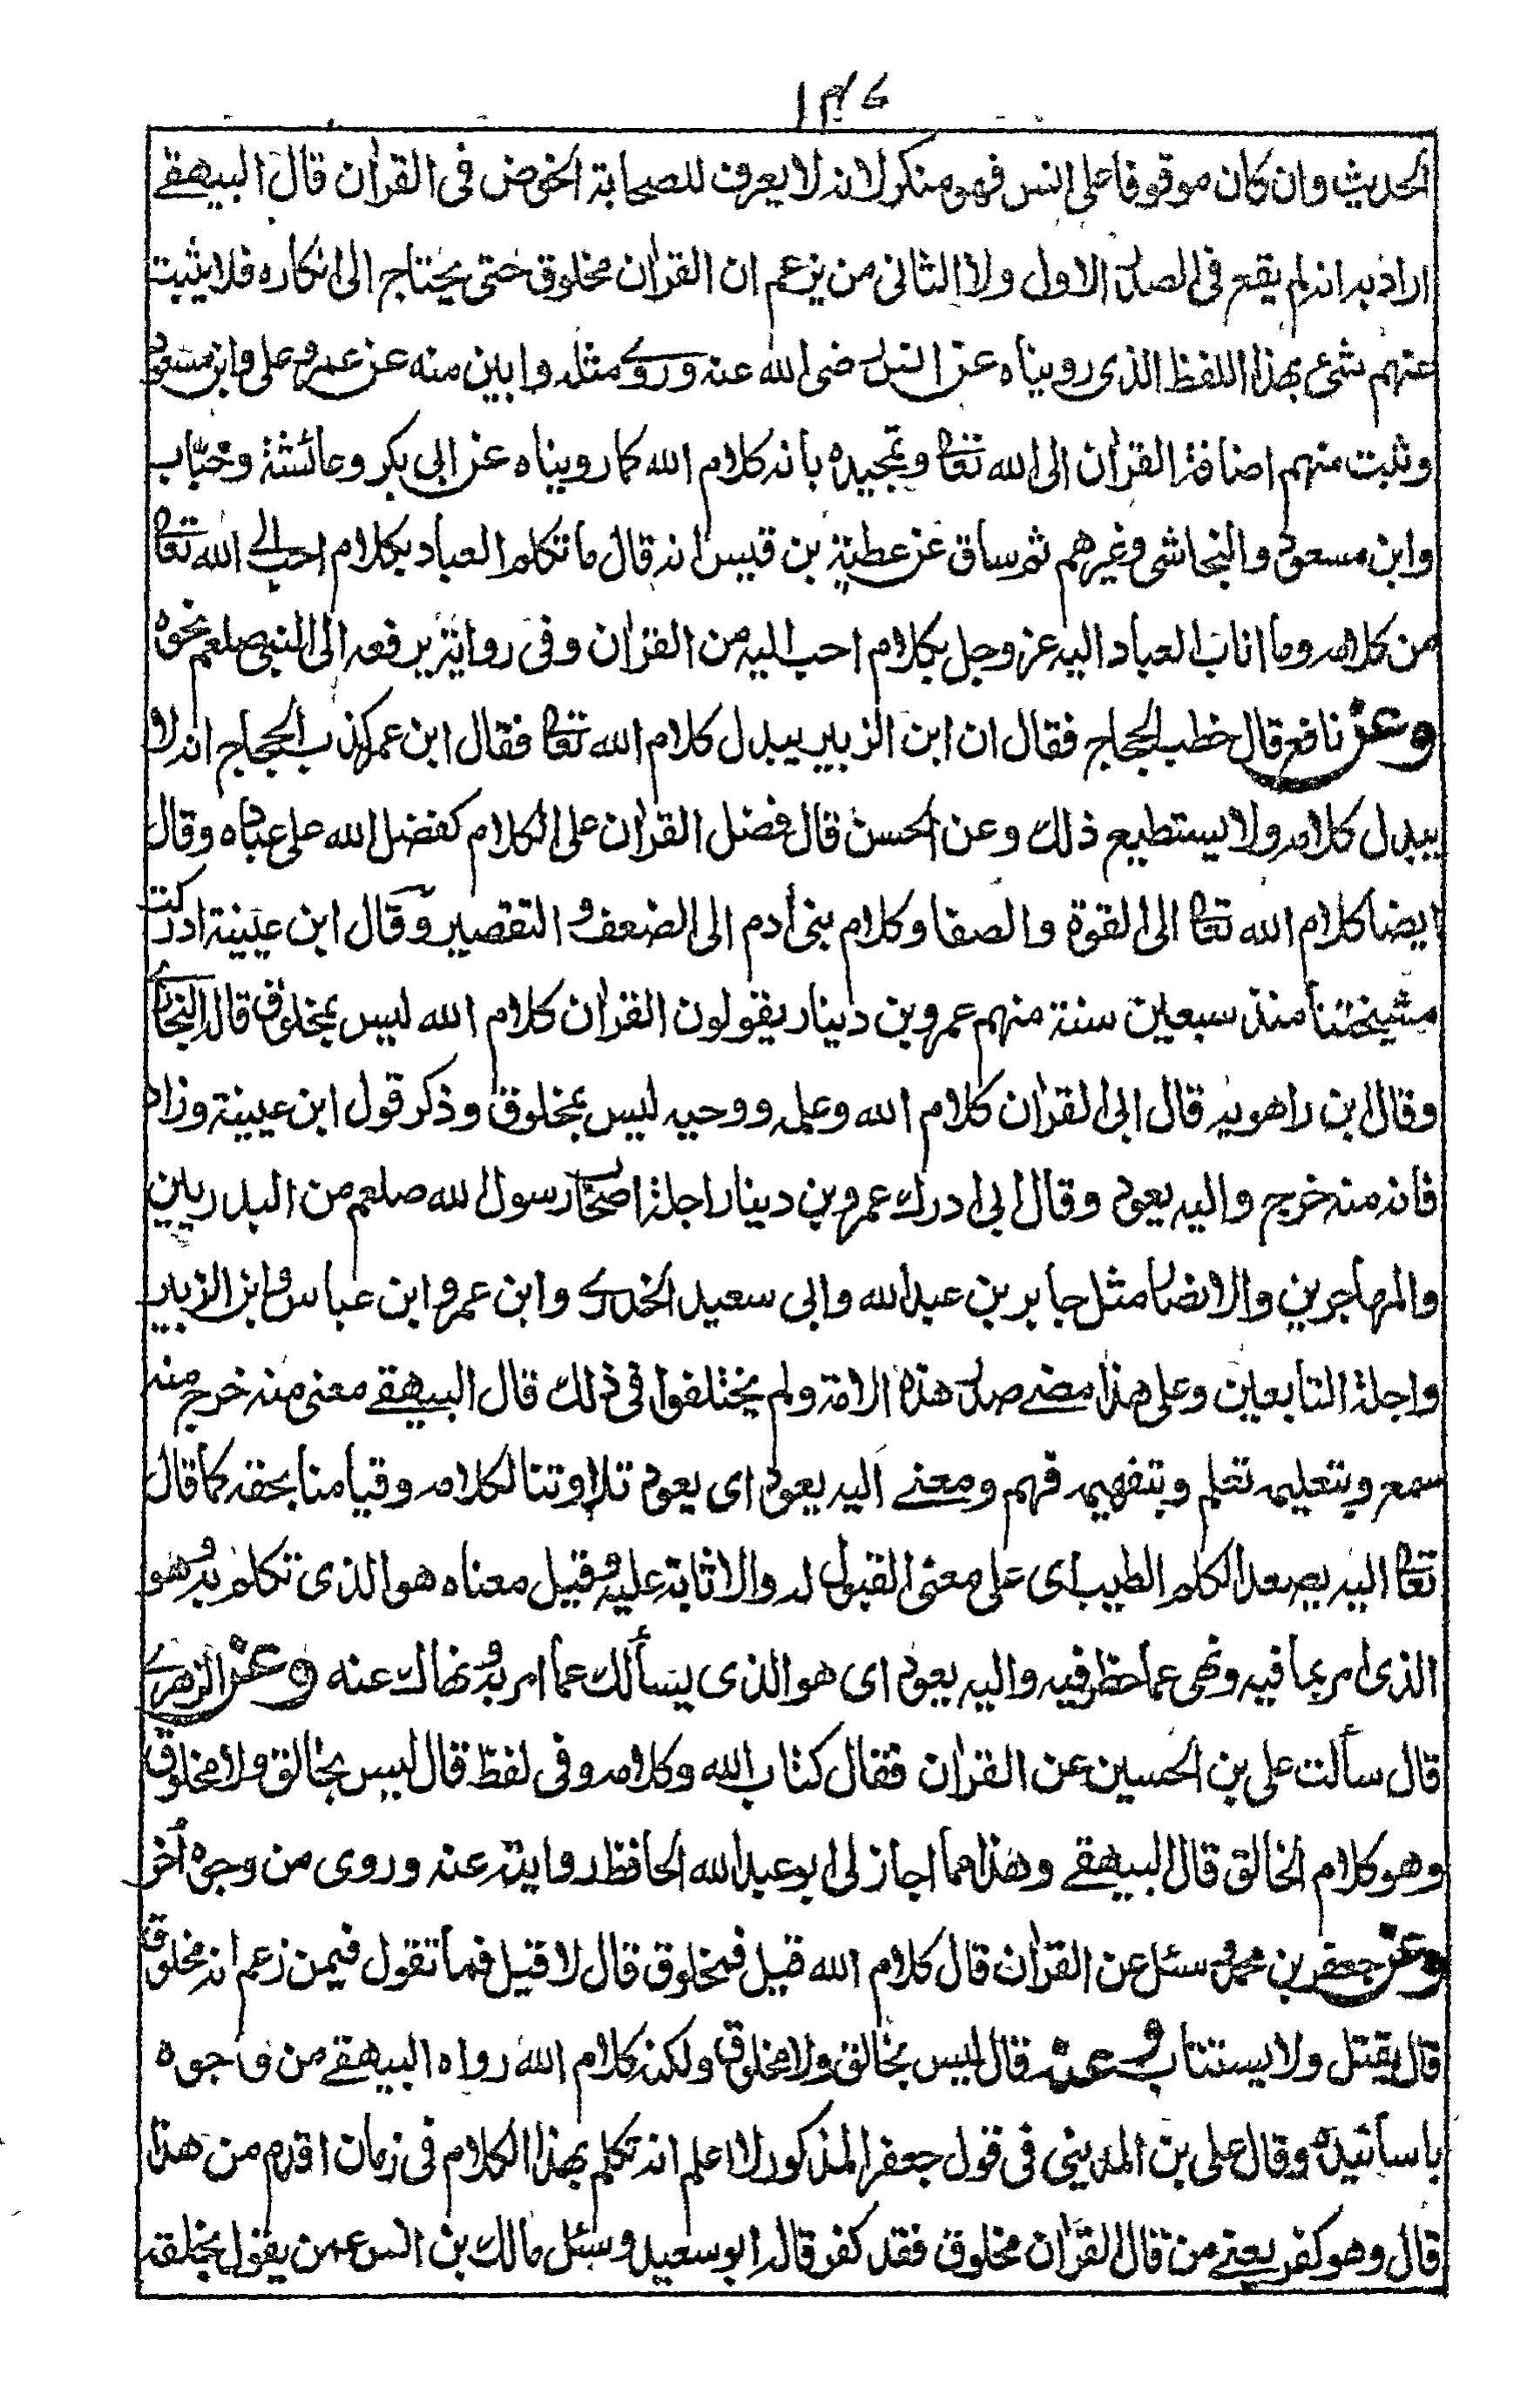 ١٣٤
الحديث وان كان موقوفا على انس فهو منكر لانه لا يعرف للصحابة الخوض فى القرأن قال البيهقے
اراد به انه لم يقع فى الصدر الاول ولا الثانى من يزعم ان القرأن مخلوق حتى يحتاج الى انكاره فلا يثبت
عنهم شئ بهذا اللفظ الذى رويناه عن انس رضى الله عنه وروے مثله وابين منه عن عمر وعلى وابن مسعود
وثبت منهم اضافة القرأن الى الله تعا وتمجيده بانه كلام الله كما رويناه عن ابى بكر وعائشة وخبّاب
وابن مسعود والنجاشى وغيرهم ثم ساق عن عطية بن قيس انه قال ما تكلم العباد بكلام احب الے الله تعا
من كلامه وما اناب العباد اليه عز وجل بكلام احب اليه من القرأن وفى رواية يرفعه الى النبى صلعم نحوه
وعن نافع قال خطب الحجاج فقال ان ابن الزبير يبدل كلام الله تعا فقال ابن عمر كذب الحجاج انه لا
يبدل كلامه ولا يستطيع ذلك وعن الحسن قال فضل القرأن على الكلام كفضل الله على عباده وقال
ايضا كلام الله تعا الى القوة والصفا وكلام بنى أدم الى الضعف والتقصير وقال ابن عيينة ادركت
مشيختنا منذ سبعين سنة منهم عمرو بن دينار يقولون القرأن كلام الله ليس بمخلوق قاله البخارے
وقال ابن راهويه قال ابى القرأن كلام الله وعلمه ووحيه ليس بمخلوق وذكر قول ابن عيينة وزاد
فانه منه خرج واليه يعود وقال ابى ادرك عمرو بن دينار اجلة اصحاب رسول الله صلعم من البدريين
والمهاجرين والانصار مثل جابر بن عبد الله وابى سعيد الخدرے وابن عمر وابن عباس وابن الزبير
واجلة التابعين وعلى هذا مضے صدر هذه الامة ولم يختلفوا فى ذلك قال البيهقے معنى منه خرج منه
سمع وبتعليمه تعلم وبتفهيمه فهم ومعنے اليه يعود اى يعود تلاوتنا لكلامه وقيامنا بحقه كما قال
تعا اليه يصعد الكلم الطيب اى على معنى القبول له والاثابة عليه وقيل معناه هو الذى تكلم به وهو
الذى امر بما فيه ونهى عما حظر فيه واليه يعود اى هو الذى يسألك عما امر به ونهاك عنه وعن الزهرے
قال سألت على بن الحسين عن القرأن فقال كتاب الله وكلامه وفى لفظ قال ليس بخالق ولا مخلوق
وهو كلام الخالق قال البيهقے وهذا مما اجاز لى ابو عبد الله الحافظ روايته عنه وروى من وجوه أخر
وعن جعفر بن محمد وسئل عن القرأن قال كلام الله قيل فمخلوق قال لا قيل فما تقول فيمن زعم انه مخلوق
قال يقتل ولا يستتاب وعنه قال ليس بخالق ولا مخلوق ولكنه كلام الله رواه البيهقے من وجوه
باسانيده وقال على بن المدينى فى قول جعفر المذكور لا اعلم انه تكلم بهذا الكلام فى زمان اقدم من هذا
قال وهو كفر يعنے من قال القرأن مخلوق فقد كفر قاله ابو سعيد وسئل مالك بن انس عمن يقول بخلقه